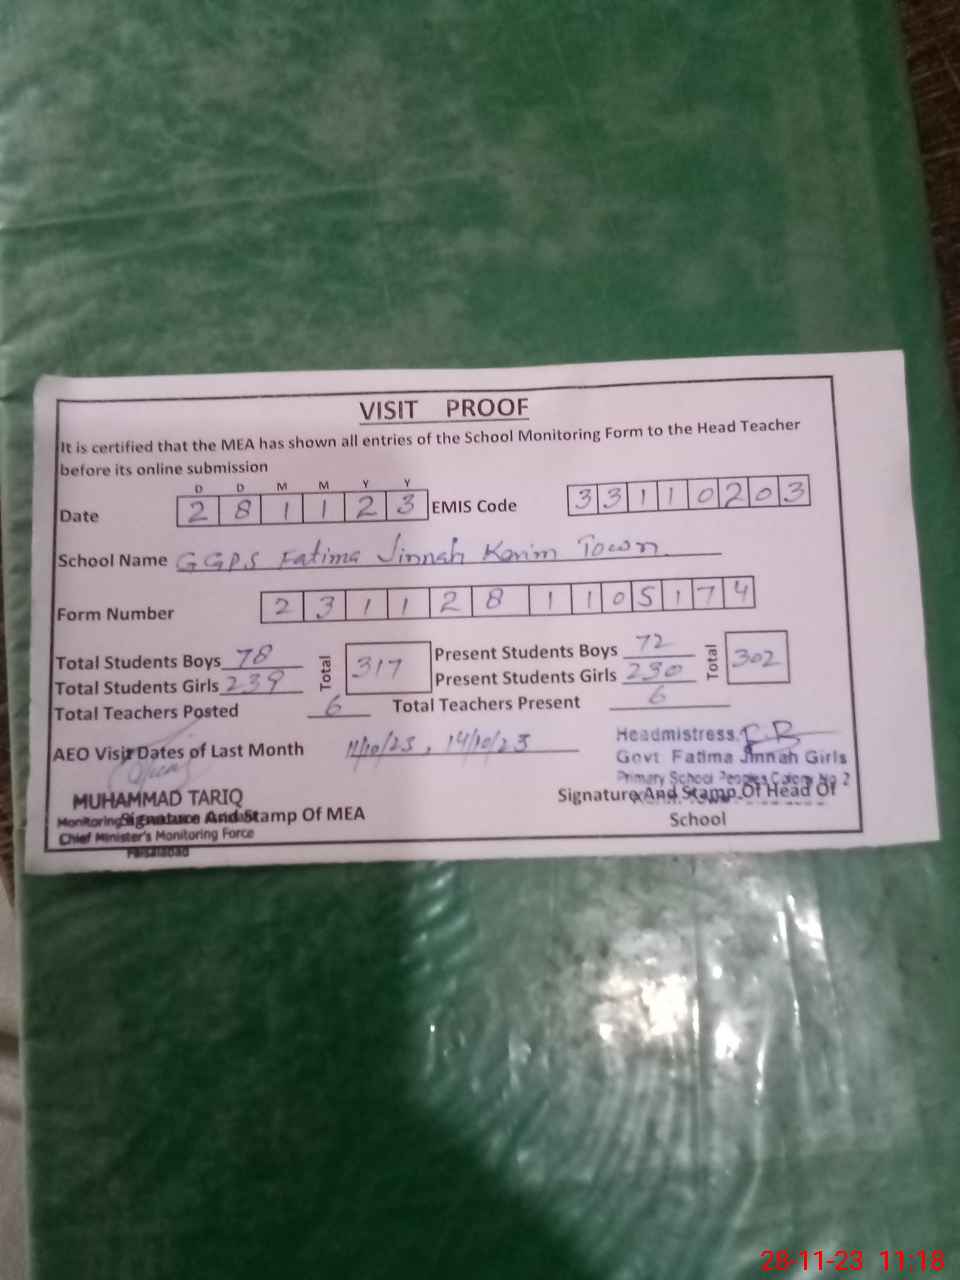 VISIT PROOF
It is certified that the MEA has shown all entries of the School Monitoring Form to the Head Teacher
before its online submission
D D M M Y Y
Date 2 8 1 1 2 3 EMIS Code 3 3 1 1 0 2 0 3
School Name GGPS Fatima Jinnah Karim Town
Form Number 2 3 1 1 2 8 1 1 0 5 1 7 4
Total Students Boys 78 Total 317 Present Students Boys 72 Total 302
Total Students Girls 239 Present Students Girls 230
Total Teachers Posted 6 Total Teachers Present 6
AEO Visit Dates of Last Month 11/10/23, 14/10/23
Headmistress
Govt Fatima Jinnah Girls
Primary School Peoples Colony No 2
MUHAMMAD TARIQ
Signature And Stamp Of MEA
Monitoring
Chief Minister's Monitoring Force
Faisalabad
Signature And Stamp Of Head Of
School
28-11-23 11:18